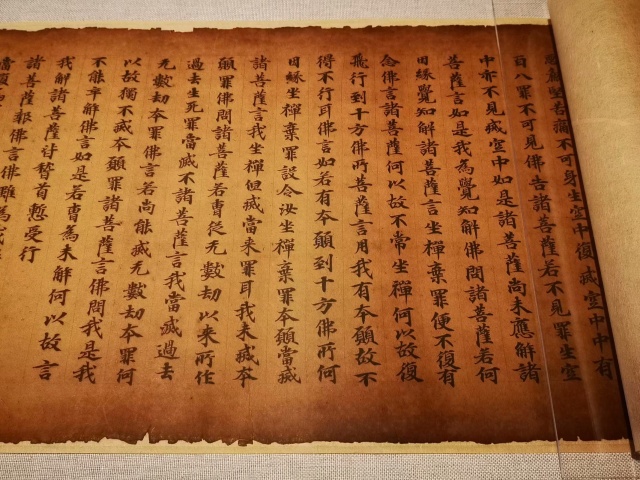 堅苦痛不可身坐空中復滅空中中有
百八罪不可見佛告諸菩薩若不見罪坐空
中亦不見滅空中如是諸菩薩尚未應解諸
菩薩言如是我為覺知解佛問諸菩薩若何
因緣覺知解諸菩薩言坐禪棄罪便不復有
念佛言諸菩薩何以故不常坐禪何以故復
飛行到十方佛所菩薩言用我有本願故不
得不行耳佛言如若有本願到十方佛所何
因緣坐禪棄罪設令汝坐禪棄罪本願當滅
諸菩薩言我坐禪但滅當來罪耳我未滅本
願罪佛問諸菩薩若曹從无數劫以來所作
過去生死罪當滅不諸菩薩言我當滅過去
无數劫本罪佛言若尚能滅无數劫本罪何
以故獨不滅本願罪諸菩薩言佛問我是我
不能卒解佛言如是若曹為未解何以故言
我解諸菩薩皆稽首慙受行
諸菩薩報佛言佛雖為